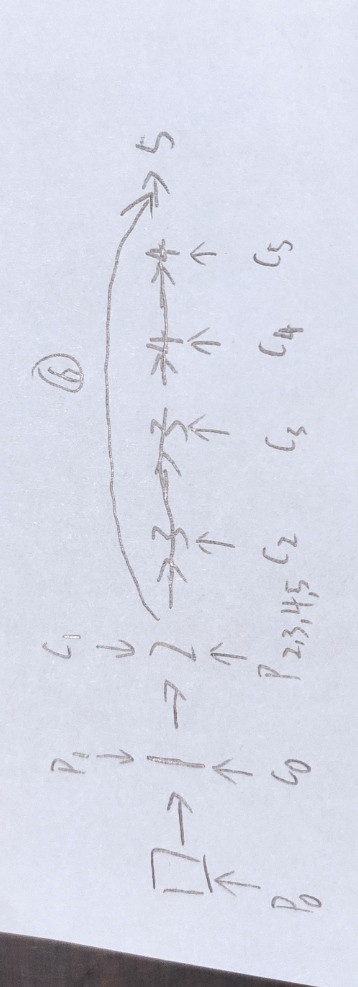 P₁ ↓ C₁ ↓ ⑥
□ → 1 → 2 → 3 → 3 → 4 → 4 → 5
↑ ↑ ↑ ↑ ↑ ↑ ↑
P₀ C₀ P₂,₃,₄,₅ C₂ C₃ C₄ C₅